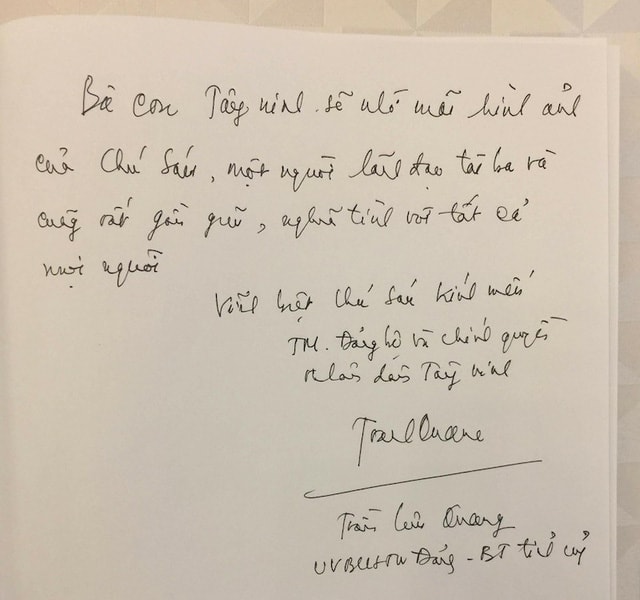 Bà con Tây Ninh sẽ nhớ mãi hình ảnh
của Chú Sáu, một người lãnh đạo tài ba và
cũng rất gần gũi, nghĩa tình với tất cả
mọi người
Vĩnh biệt Chú Sáu kính mến
TM. Đảng bộ và chính quyền
nhân dân Tây Ninh
TranQuang
Trần Lưu Quang
UVBCHTW Đảng - BT tỉnh ủy